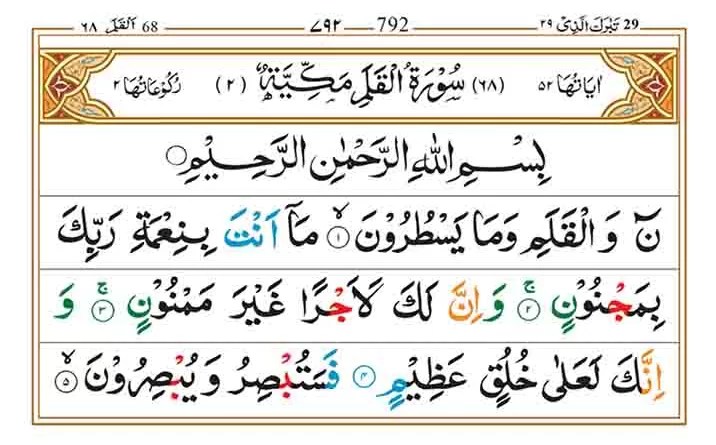 29 تبٰرك الذی ٢٩ 792 — ٧٩٢ 68 القلم ٦٨
اٰیاتها ٥٢ (٦٨) سُوْرَةُ الْقَلَمِ مَكِّيَّةٌ (٢) رُكُوْعَاتُهَا ٢
بِسْمِ اللهِ الرَّحْمٰنِ الرَّحِيْمِ
نٓ وَالْقَلَمِ وَمَا يَسْطُرُوْنَ ۙ‏١ مَاۤ اَنْتَ بِنِعْمَةِ رَبِّكَ
بِمَجْنُوْنٍ ۚ‏٢ وَاِنَّ لَكَ لَاَجْرًا غَيْرَ مَمْنُوْنٍ ۚ‏٣ وَ
اِنَّكَ لَعَلٰى خُلُقٍ عَظِيْمٍ ٤ فَسَتُبْصِرُ وَيُبْصِرُوْنَ ۙ‏٥